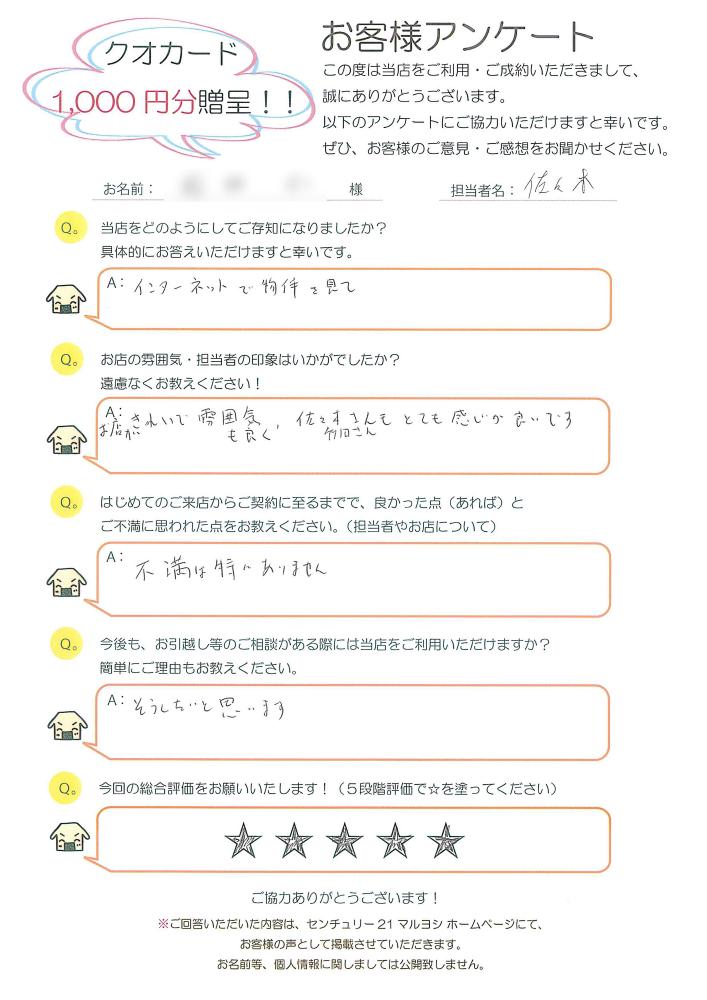 クオカード
1,000円分贈呈！！
お客様アンケート
この度は当店をご利用・ご成約いただきまして、
誠にありがとうございます。
以下のアンケートにご協力いただけますと幸いです。
ぜひ、お客様のご意見・ご感想をお聞かせください。
お名前： 様 担当者名：佐々木
Q。 当店をどのようにしてご存知になりましたか？
具体的にお答えいただけますと幸いです。
A： インターネットで物件を見て
Q。 お店の雰囲気・担当者の印象はいかがでしたか？
遠慮なくお教えください！
A：
お店がきれいで雰囲気も良く、佐々木さんもとても感じが良いです
竹田さん
Q。 はじめてのご来店からご契約に至るまでで、良かった点（あれば）と
ご不満に思われた点をお教えください。（担当者やお店について）
A： 不満は特にありません
Q。 今後も、お引越し等のご相談がある際には当店をご利用いただけますか？
簡単にご理由もお教えください。
A： そうしたいと思います
Q。 今回の総合評価をお願いいたします！（５段階評価で☆を塗ってください）
ご協力ありがとうございます！
※ご回答いただいた内容は、センチュリー21マルヨシ ホームページにて、
お客様の声として掲載させていただきます。
お名前等、個人情報に関しましては公開致しません。